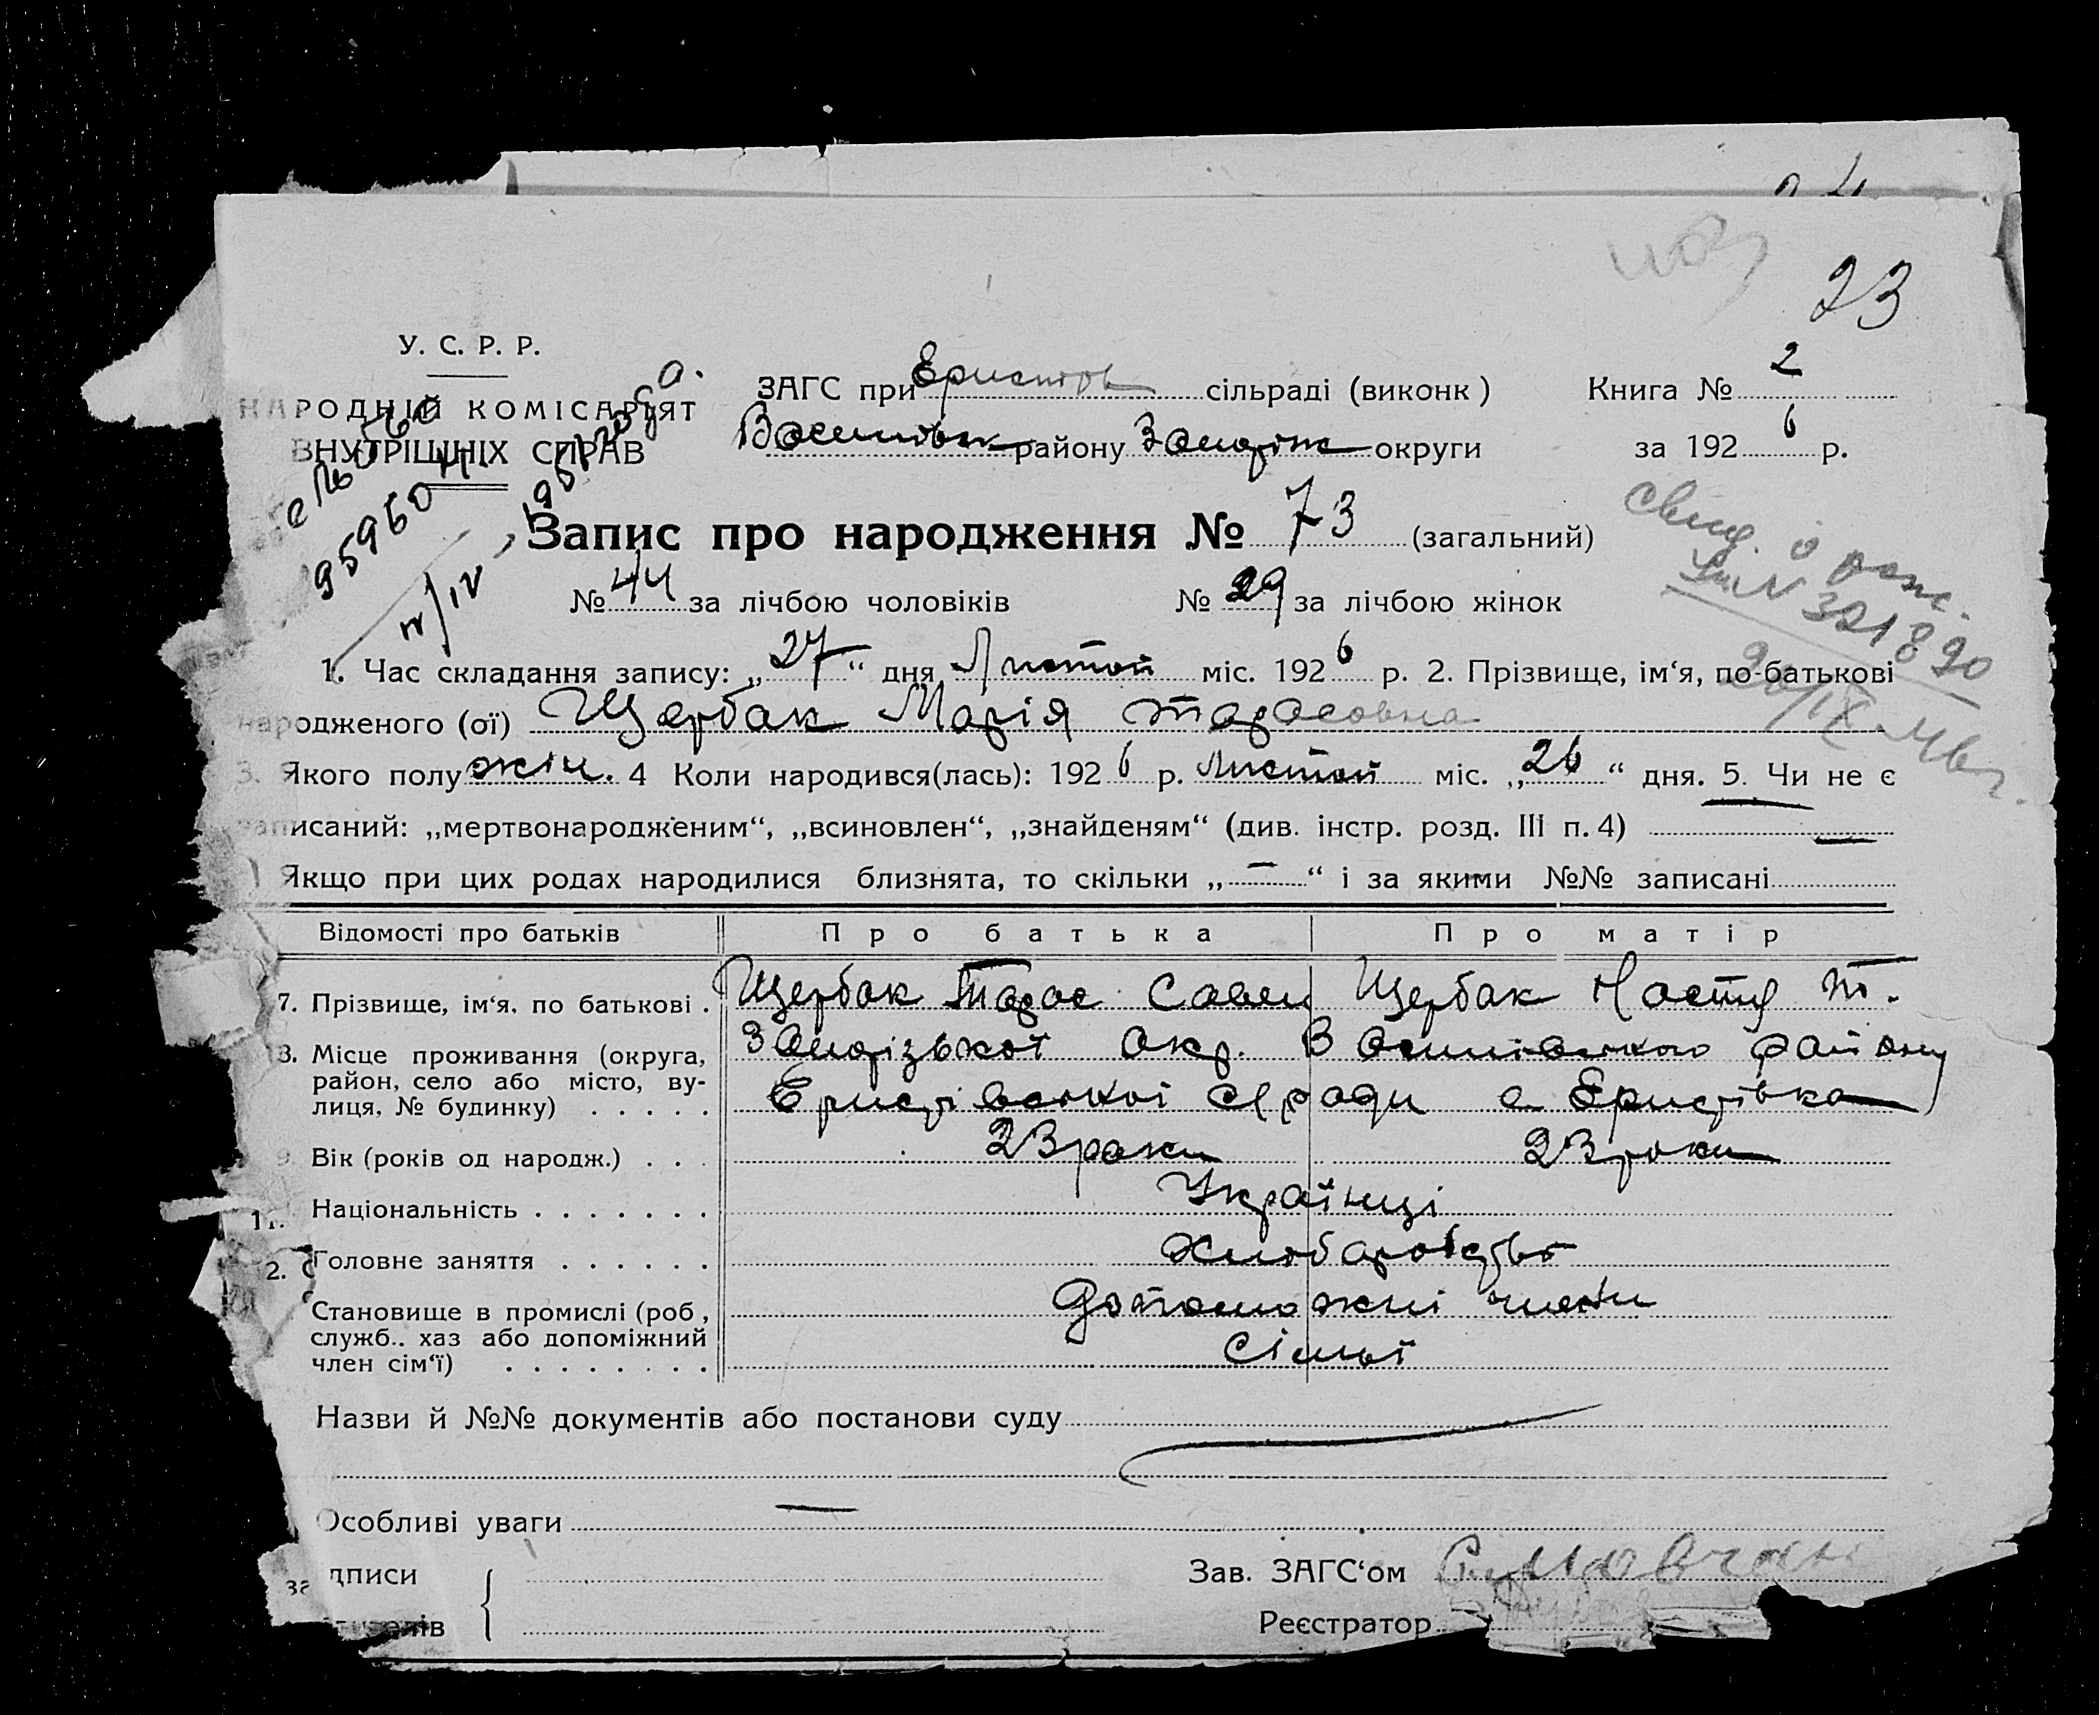 23
У. С. Р. Р.
НАРОДНІЙ КОМІСАРІЯТ
ВНУТРІШНІХ СПРАВ
ЗАГС при Еристов сільраді (виконк) Книга № 2
Василівськ району Запоріж округи за 1926 р.
Запис про народження № 73 (загальний)
№ 44 за лічбою чоловіків № 29 за лічбою жінок
95960
11/IV
свид. о рож.
№ 321890
20/IX
1. Час складання запису: „27“ дня Листопй міс. 1926 р. 2. Прізвище, ім‘я, по-батькові
народженого (ої) Щербак Марія Тарасовна
3. Якого полу жін. 4 Коли народився(лась): 1926 р. Листопй міс. „26“ дня. 5. Чи не є
записаний: „мертвонародженим“, „всиновлен“, „знайденям“ (див. інстр. розд. III п. 4) —
Якщо при цих родах народилися близнята, то скільки „—“ і за якими №№ записані
Відомості про батьків Про батька Про матір
7. Прізвище, ім‘я, по батькові . Щербак Тарас Савел Щербак Настя Т.
8. Місце проживання (округа, район, село або місто, вулиця, № будинку) . . . . . Запорізької Окр. Василівського району
Еристівської с/ради с. Еристівка
9. Вік (років од народж.) . . . 23 роки 23 роки
Національність . . . . . . . Українці
Головне заняття . . . . . . Хліборобство
Становище в промислі (роб, служб.. хаз або допоміжний член сім‘ї) . . . . . . . . допоможні члени
сімьї
Назви й №№ документів або постанови суду
Особливі уваги —
дписи Зав. ЗАГС‘ом Мовчан
Реєстратор